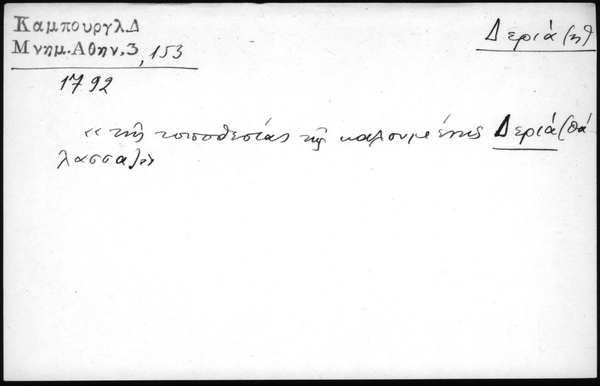 Καμπουργλ.Δ
Μνημ.Αθην.3, 153
Δεριά (ἡ)
1792
« τῆς τοποθεσίας τῆς καλουμένης Δεριά (θά-
λασσα)»